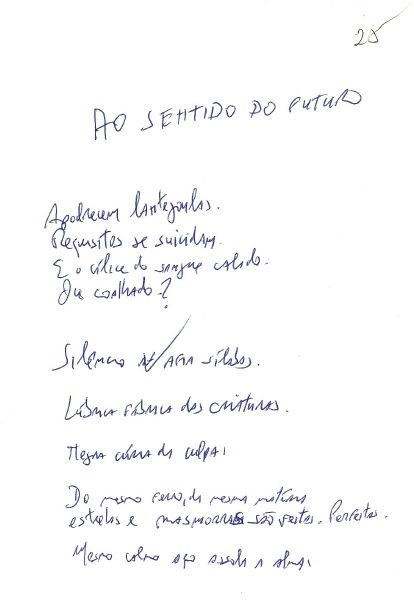 25
AO SENTIDO DO FUTURO
Apodrecem lantejoulas.
Requisitos se suicidam.
E o cálice do sangue calado.
Ou coalhado?
Silêncio sílabas.
Lúbrica fábrica das criaturas.
Mesma da culpa:
Do mesmo ferro, da mesma matéria
estrelas e masmorras são feitas. Perfeitas.
Mesmo aço a alma: